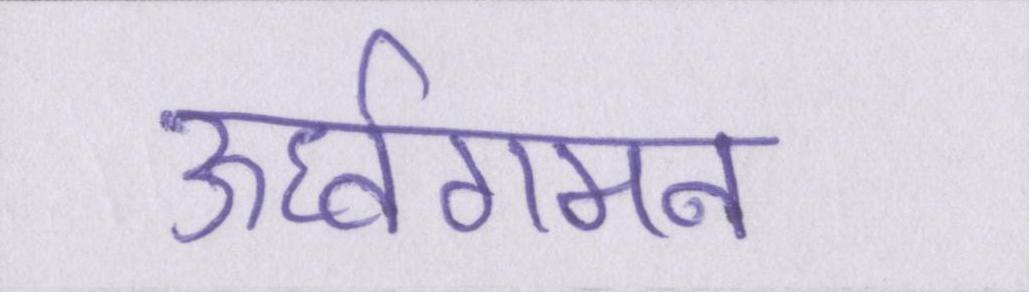 ऊर्ध्वगमन